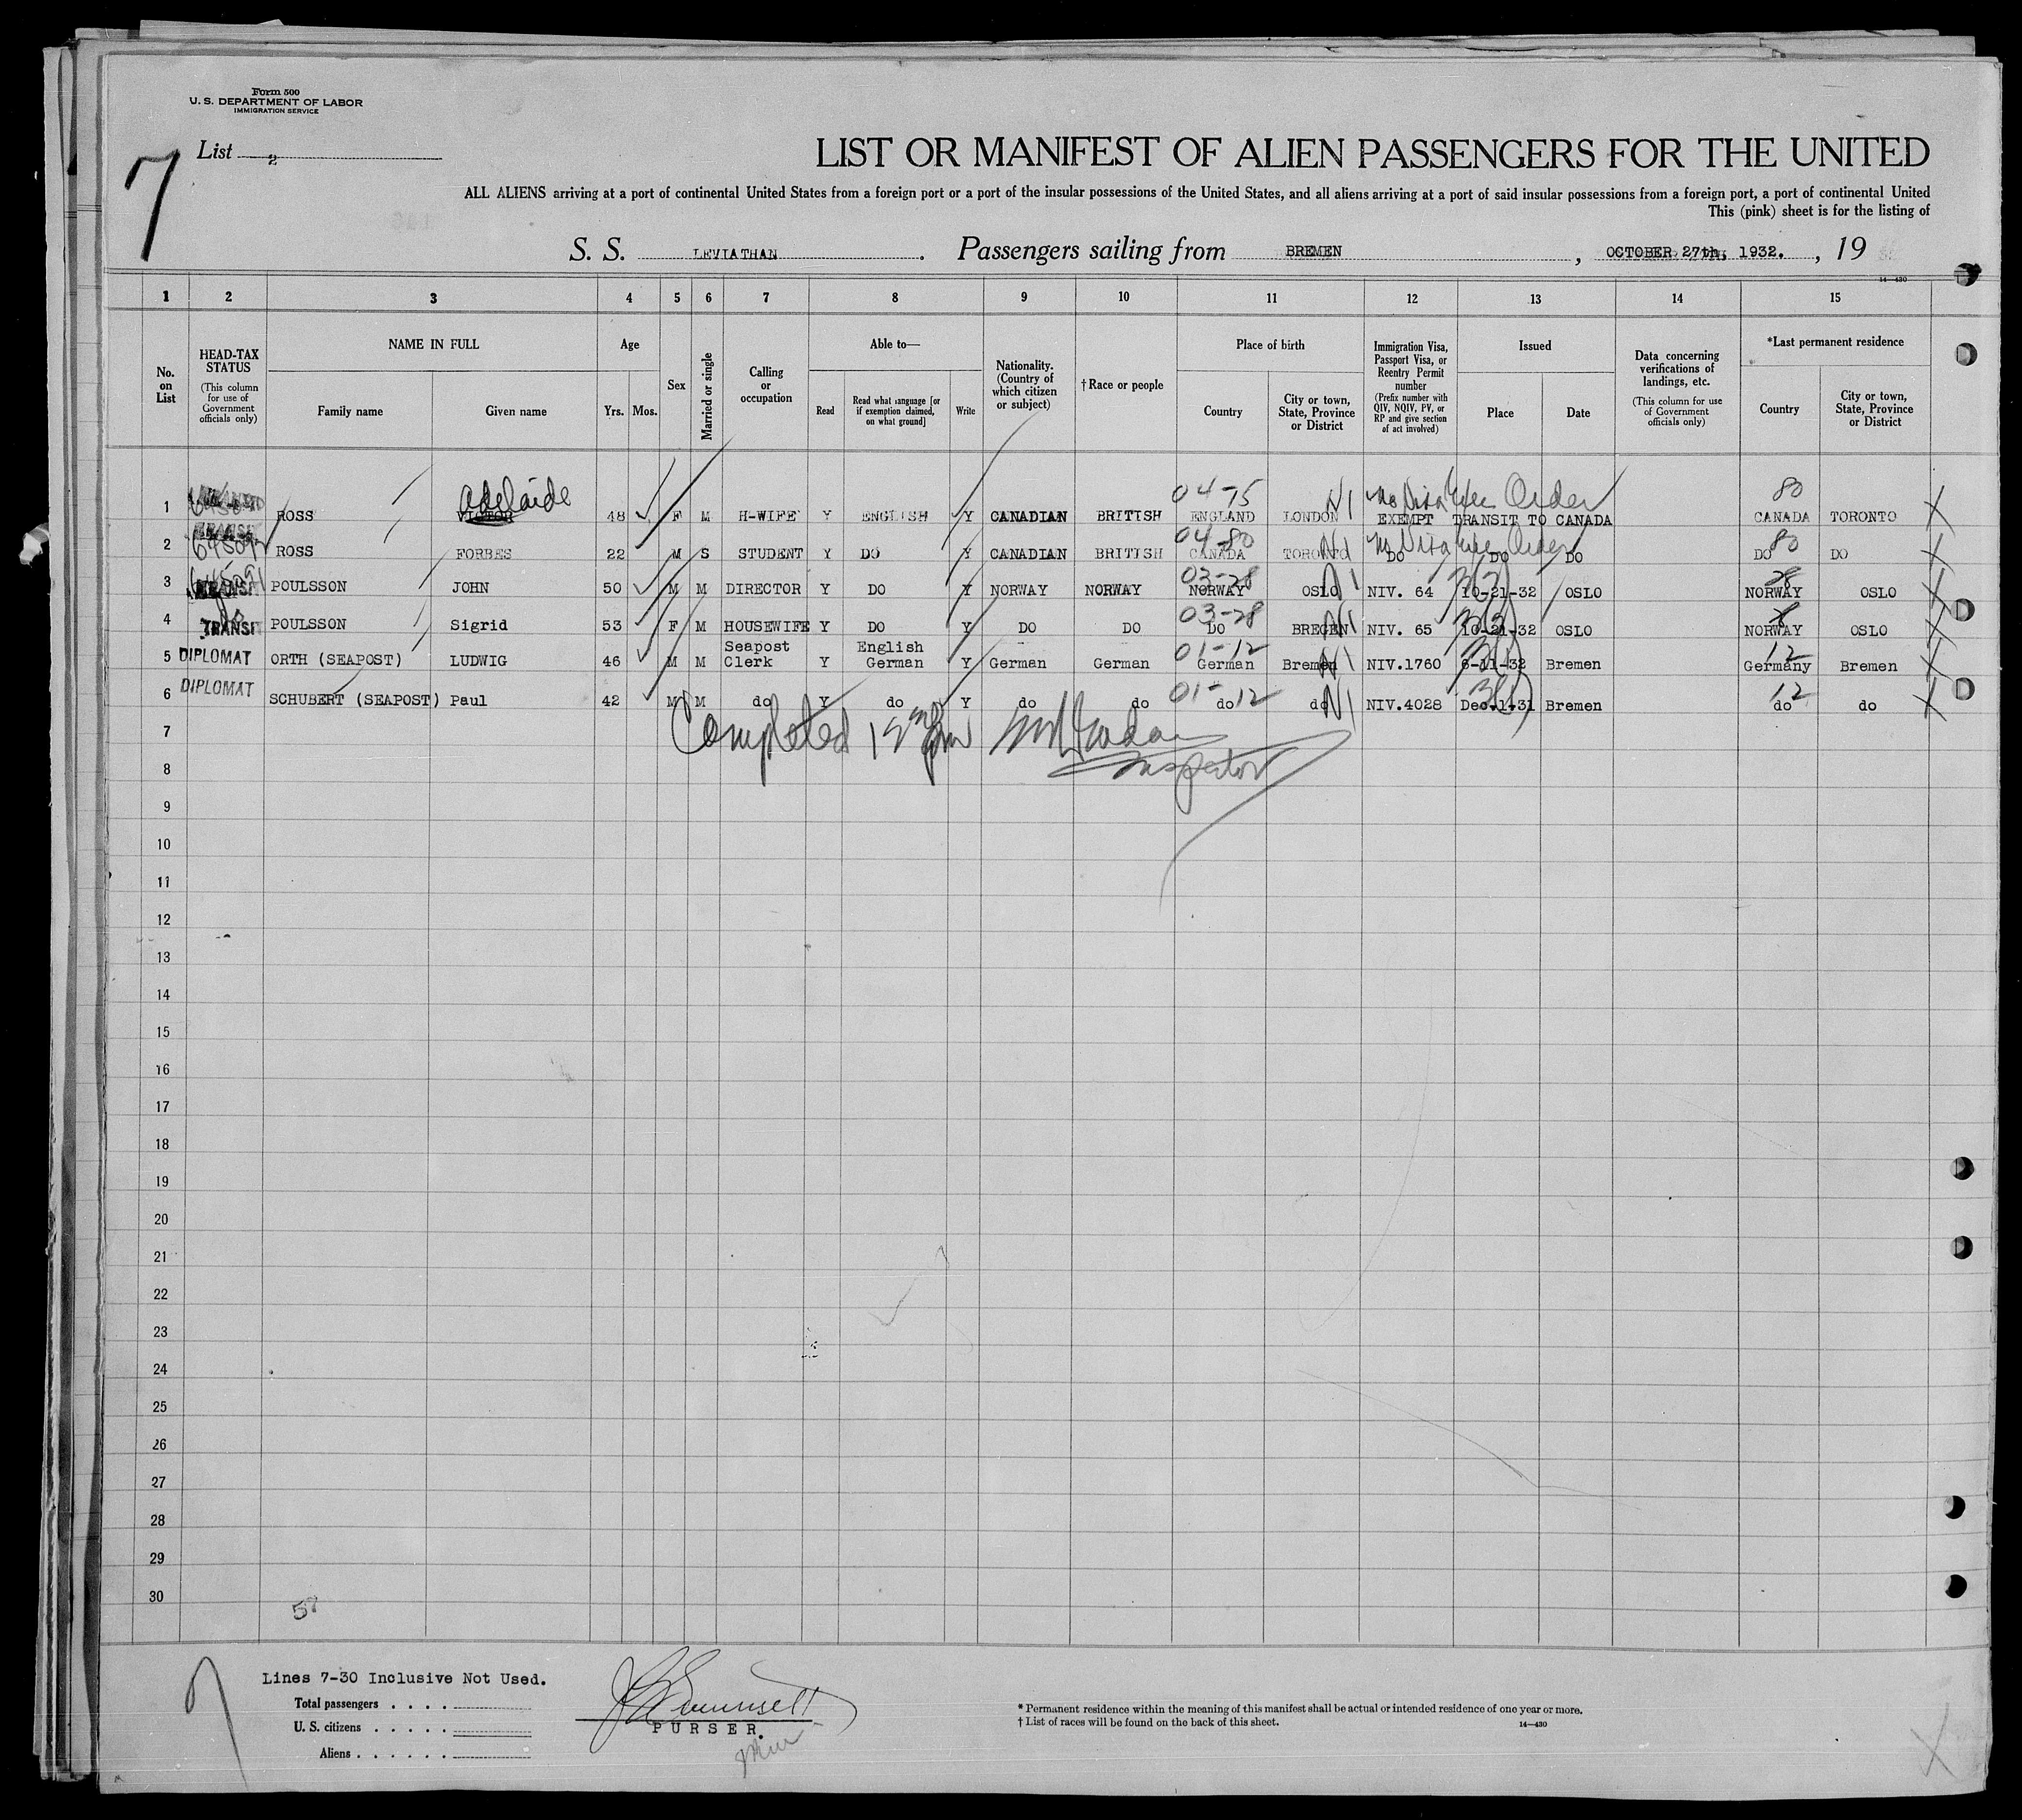 Form 500
U. S. DEPARTMENT OF LABOR
IMMIGRATION SERVICE
7
List 2
LIST OR MANIFEST OF ALIEN PASSENGERS FOR THE UNITED
ALL ALIENS arriving at a port of continental United States from a foreign port or a port of the insular possessions of the United States, and all aliens arriving at a port of said insular possessions from a foreign port, a port of continental United
This (pink) sheet is for the listing of
S. S. LEVIATHAN. Passengers sailing from BREMEN, OCTOBER 27th, 1932., 19
14—430
1 2 3 4 5 6 7 8 9 10 11 12 13 14 15
No. on List
HEAD-TAX STATUS (This column for use of Government officials only)
NAME IN FULL Family name Given name
Age Yrs. Mos.
Sex
Married or single
Calling or occupation
Able to— Read Read what language [or if exemption claimed, on what ground] Write
Nationality. (Country of which citizen or subject)
†Race or people
Place of birth Country City or town, State, Province or District
Immigration Visa, Passport Visa, or Reentry Permit number (Prefix number with QIV, NQIV, PV, or RP and give section of act involved)
Issued Place Date
Data concerning verifications of landings, etc. (This column for use of Government officials only)
*Last permanent residence Country City or town, State, Province or District
Adelaide 04-75 N1 No Visa Order 80
1 ROSS VICTOR 48 F M H-WIFE Y ENGLISH Y CANADIAN BRITISH ENGLAND LONDON EXEMPT TRANSIT TO CANADA CANADA TORONTO X
04-80 N1 No Visa Order 80
2 ROSS FORBES 22 M S STUDENT Y DO Y CANADIAN BRITISH CANADA TORONTO DO DO DO DO DO X
03-28 N1 3(2) 28
3 TRANSIT POULSSON JOHN 50 M M DIRECTOR Y DO Y NORWAY NORWAY NORWAY OSLO NIV. 64 10-21-32 OSLO NORWAY OSLO X
03-28 N1 3(2)
4 TRANSIT POULSSON Sigrid 53 F M HOUSEWIFE Y DO Y DO DO DO BREGEN NIV. 65 10-21-32 OSLO NORWAY OSLO X
Seapost English 01-12 N1 12
5 DIPLOMAT ORTH (SEAPOST) LUDWIG 46 M M Clerk Y German Y German German German Bremen NIV.1760 6-11-32 Bremen Germany Bremen X
01-12 N1 3(1) 12
6 DIPLOMAT SCHUBERT (SEAPOST) Paul 42 M M do Y do Y do do do do NIV.4028 Dec.1-31 Bremen do do X
Completed
7
Inspector
8
9
10
11
12
13
14
15
16
17
18
19
20
21
22
23
24
25
26
27
28
29
30
Lines 7-30 Inclusive Not Used.
Total passengers . . . .
U. S. citizens . . . . .
Aliens . . . . . .
PURSER.
* Permanent residence within the meaning of this manifest shall be actual or intended residence of one year or more.
† List of races will be found on the back of this sheet.
14—430
X